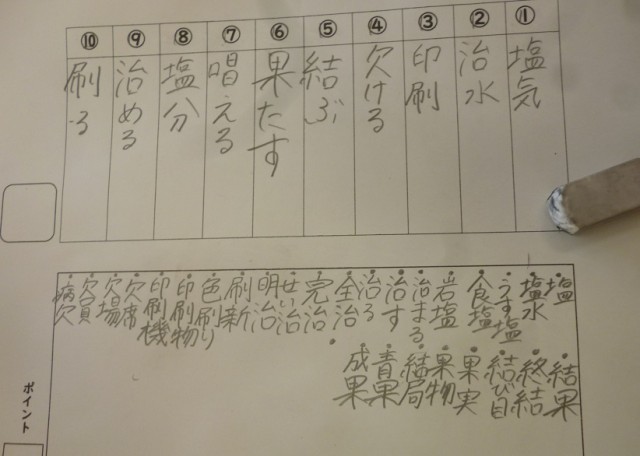 ①塩気
②治水
③印刷
④欠ける
⑤結ぶ
⑥果たす
⑦唱える
⑧塩分
⑨治める
⑩刷る
塩
塩水
うす塩
食塩
岩塩
治まる
治す
治る
全治
完治
せい治
明治
刷新
色刷り
印刷物
印刷機
欠席
欠場
欠員
病欠
結果
終結
結び目
果実
果物
結局
青果
成果
ポイント